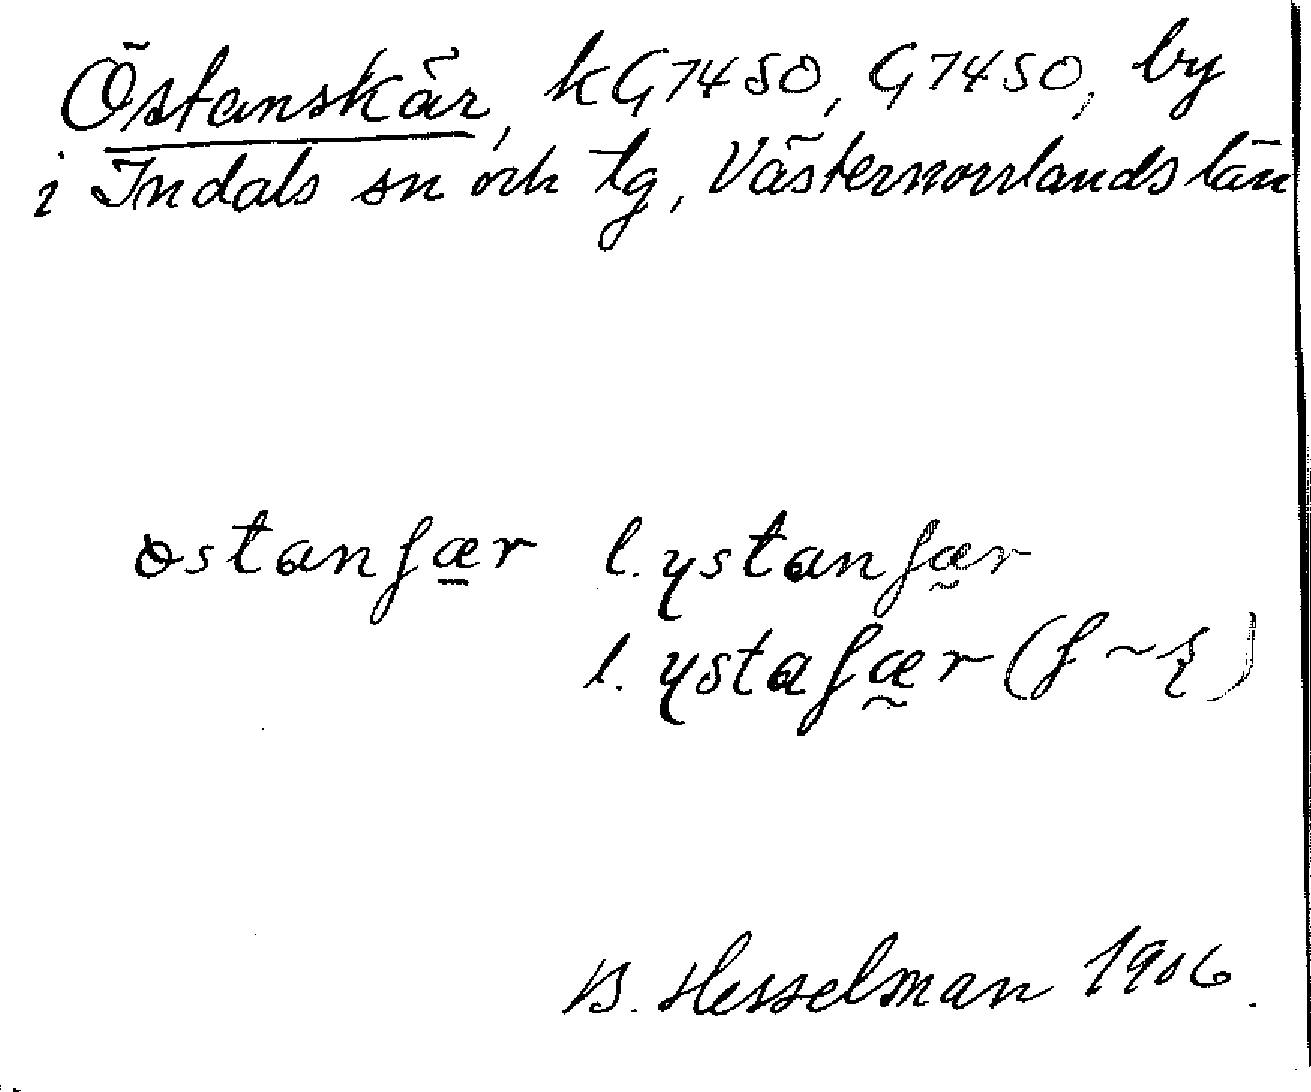 Östanskär, kG7450, G7450, by
i Indals sn och tg, Västernorrlands län
østanʃær l. ystanʃær
l. ystaʃær (ʃ ~
B. Hesselman 1906.